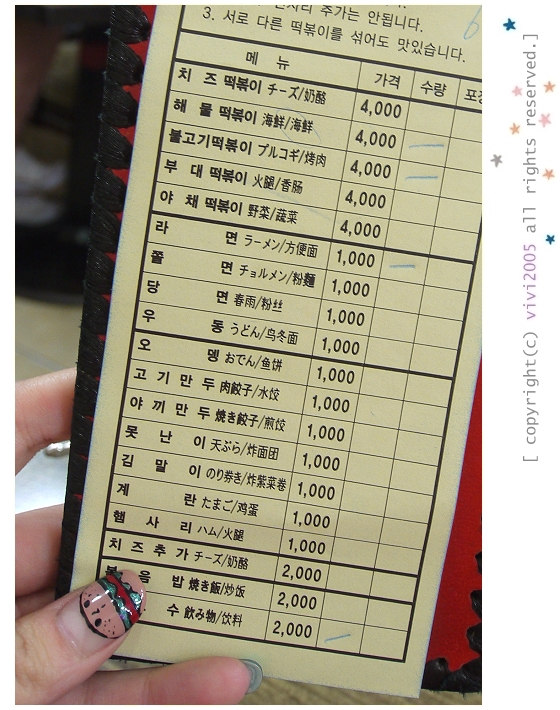 추가는 안됩니다.
3. 서로 다른 떡볶이를 섞어도 맛있습니다.
메 뉴 가격 수량 포장
치 즈 떡볶이 チーズ/奶酪 4,000
해 물 떡볶이 海鮮/海鲜 4,000
불고기떡볶이 プルコギ/烤肉 4,000
부 대 떡볶이 火腿/香肠 4,000
야 채 떡볶이 野菜/蔬菜 4,000
라 면 ラーメン/方便面 1,000
쫄 면 チョルメン/粉麵 1,000
당 면 春雨/粉丝 1,000
우 동 うどん/乌冬面 1,000
오 뎅 おでん/鱼饼 1,000
고 기 만 두 肉餃子/水饺 1,000
야 끼 만 두 焼き餃子/煎饺 1,000
못 난 이 天ぷら/炸面团 1,000
김 말 이 のり券き/炸紫菜卷 1,000
계 란 たまご/鸡蛋 1,000
햄 사 리 ハム/火腿 1,000
치 즈 추 가 チーズ/奶酪 2,000
볶 음 밥 焼き飯/炒饭 2,000
수 飲み物/饮料 2,000
[ copyright(c) vivi2005 all rights reserved.]